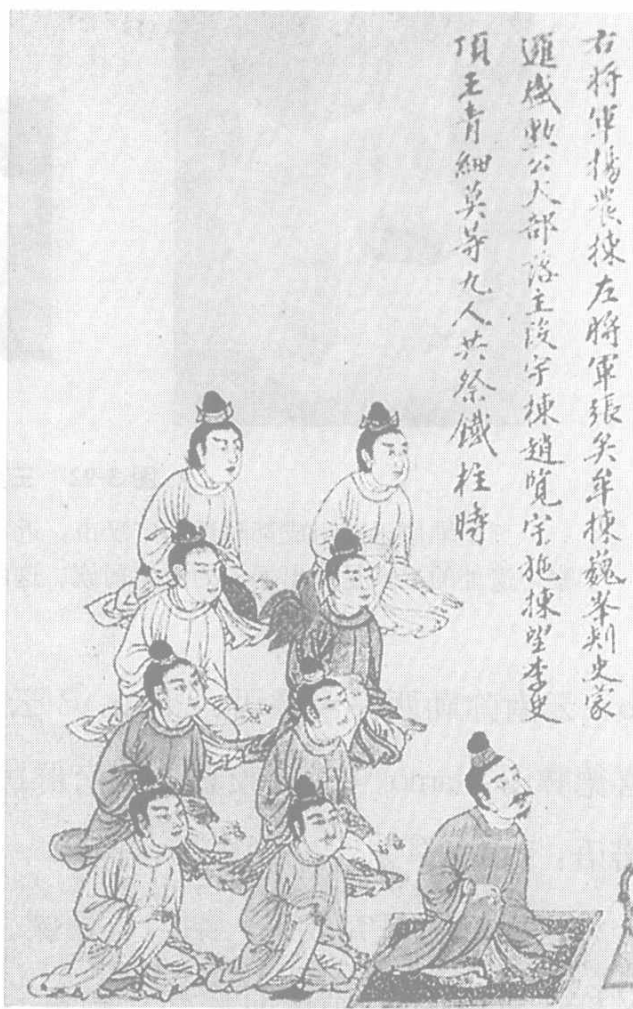 右将軍揚農揀左將軍張矣牟揀巍峯刾史蒙
邏盛勲公大部落主段宇棟趙覽宇施揀望李史
頂王青細莫等九人共祭鐵柱時